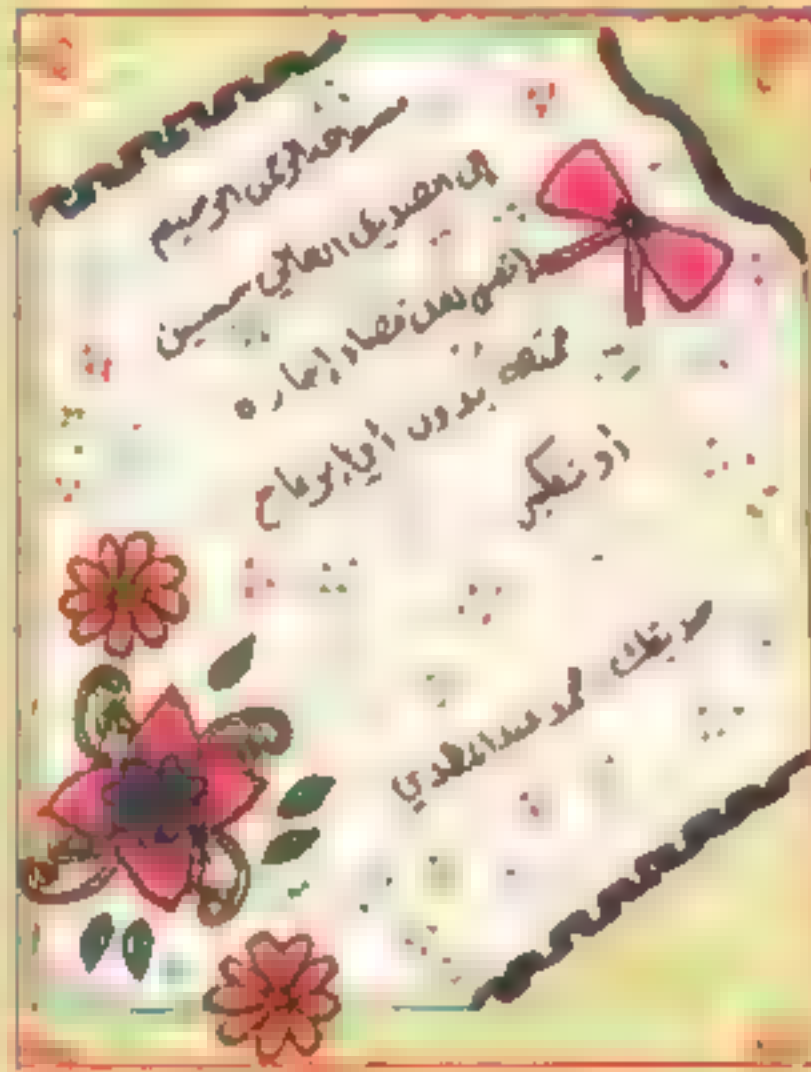 بسم الله الرحمن الرحيم
إلى صديقي الغالي حسين
أتمنى لك قضاء إجازة
ممتعة بدون أي إزعاج
أو تعكير
صديقك محمد